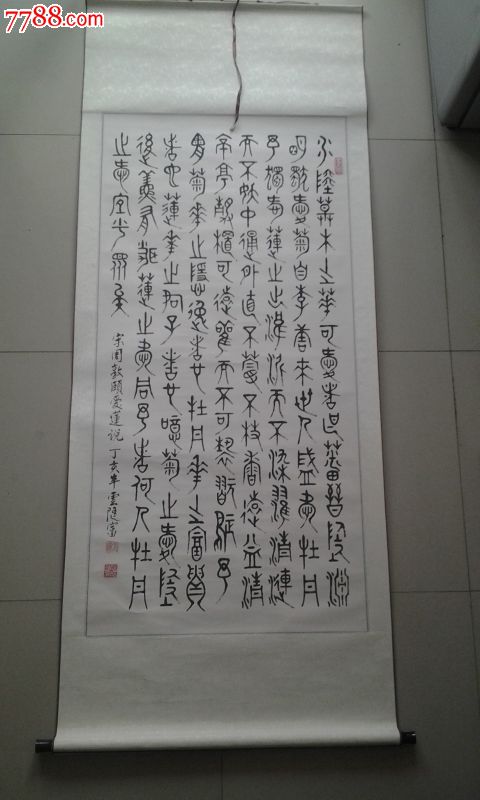 7788.com
水陸草木之華可愛者甚蕃晉陶淵
明獨愛菊自李唐來世人盛愛牡丹
予獨愛蓮之出淤泥而不染濯清漣
而不妖中通外直不蔓不枝香遠益清
亭亭靜植可遠觀而不可褻翫焉予
謂菊華之隱逸者也牡丹華之富貴
者也蓮華之君子者也噫菊之愛陶
後鮮有聞蓮之愛同予者何人牡丹
之愛宜乎眾矣
宋周敦頤爱蓮説 丁亥年雲